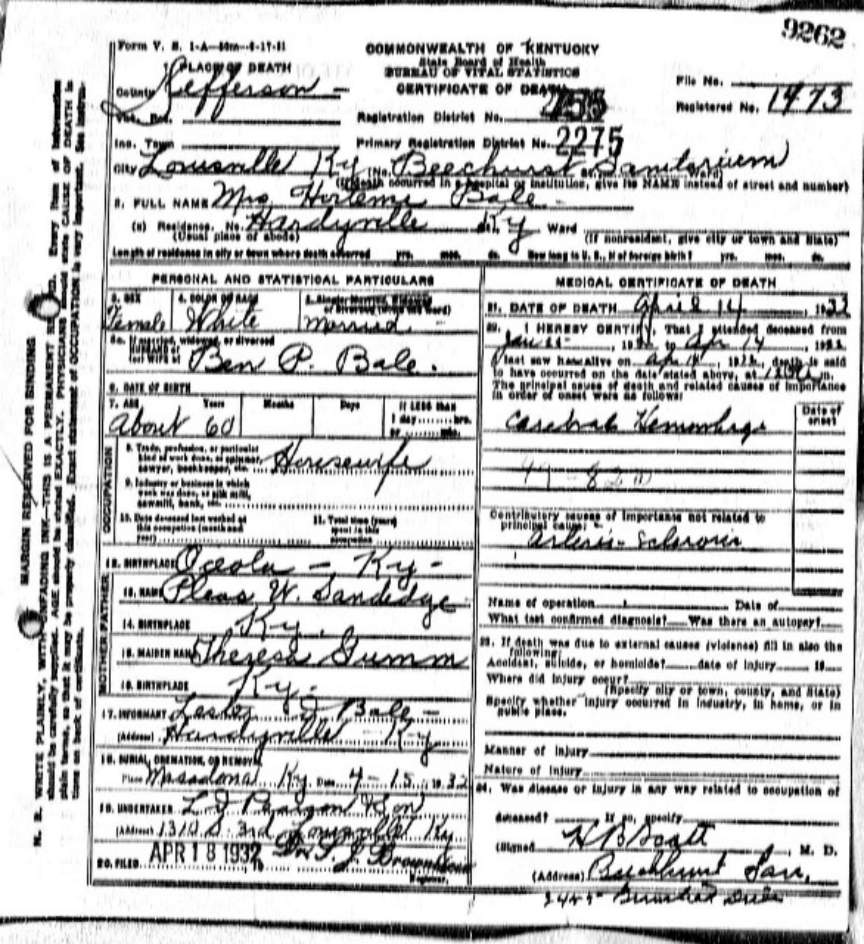 9262
Form V. S. 1-A—50m—6-17-31
COMMONWEALTH OF KENTUCKY
State Board of Health
BUREAU OF VITAL STATISTICS
CERTIFICATE OF DEATH
File No.
Registered No. 1473
1 PLACE OF DEATH
County Jefferson
Vot. Pct.
Registration District No. 755
Inc. Town
Primary Registration District No. 2275
City Louisville Ky (No. Beechurst Sanitarium St. Ward)
(If death occurred in a hospital or institution, give its NAME instead of street and number)
2. FULL NAME Mrs Bale
(a) Residence. No. Hardyville St. Ky Ward
(Usual place of abode)
(If nonresident, give city or town and State)
Length of residence in city or town where death occurred yrs. mos. ds. How long in U. S., if of foreign birth? yrs. mos. ds.
PERSONAL AND STATISTICAL PARTICULARS
3. SEX Female
4. COLOR OR RACE White
5. Single, Married, Widowed or Divorced (write the word) Married
5a. If married, widowed, or divorced
(or) WIFE of Ben P. Bale.
6. DATE OF BIRTH
7. AGE Years Months Days If LESS than 1 day hrs. or min.
About 60
OCCUPATION
8. Trade, profession, or particular kind of work done, as spinner, sawyer, bookkeeper, etc. Housewife
9. Industry or business in which work was done, as silk mill, sawmill, bank, etc.
10. Date deceased last worked at this occupation (month and year)
11. Total time (years) spent in this occupation
12. BIRTHPLACE Oceola - Ky -
MOTHER FATHER
13. NAME Pleas W. Sandidge
14. BIRTHPLACE Ky.
15. MAIDEN NAME Theresa Gumm
16. BIRTHPLACE Ky.
17. INFORMANT Lester J Bale
(Address) Hardyville Ky
18. BURIAL, CREMATION, OR REMOVAL
Place Ky. Date 4-15, 1932
19. UNDERTAKER L. D. Pearson & Son
(Address) 1310 S. 3rd Louisville Ky
20. FILED APR 18 1932
Registrar.
MEDICAL CERTIFICATE OF DEATH
21. DATE OF DEATH April 14, 1932
22. I HEREBY CERTIFY, That I attended deceased from
Jan 1932, to Apr 14, 1932
I last saw h alive on Apr 14, 1932, death is said
to have occurred on the date stated above, at m.
The principal cause of death and related causes of importance
in order of onset were as follows:
Date of onset
Cerebral Hemorrhage
Contributory causes of importance not related to
principal cause:
Arterio-sclerosis
Name of operation Date of
What test confirmed diagnosis? Was there an autopsy?
23. If death was due to external causes (violence) fill in also the
following:
Accident, suicide, or homicide? date of injury 19
Where did injury occur?
(Specify city or town, county, and State)
Specify whether injury occurred in industry, in home, or in
public place.
Manner of injury
Nature of injury
24. Was disease or injury in any way related to occupation of
deceased? If so, specify
(Signed) H B Scott, M. D.
(Address) Beechhurst San.
MARGIN RESERVED FOR BINDING
N. B. WRITE PLAINLY, WITH UNFADING INK—THIS IS A PERMANENT RECORD. Every item of information
should be carefully supplied. AGE should be stated EXACTLY. PHYSICIANS should state CAUSE OF DEATH in
plain terms, so that it may be properly classified. Exact statement of OCCUPATION is very important. See instruc-
tions on back of certificate.